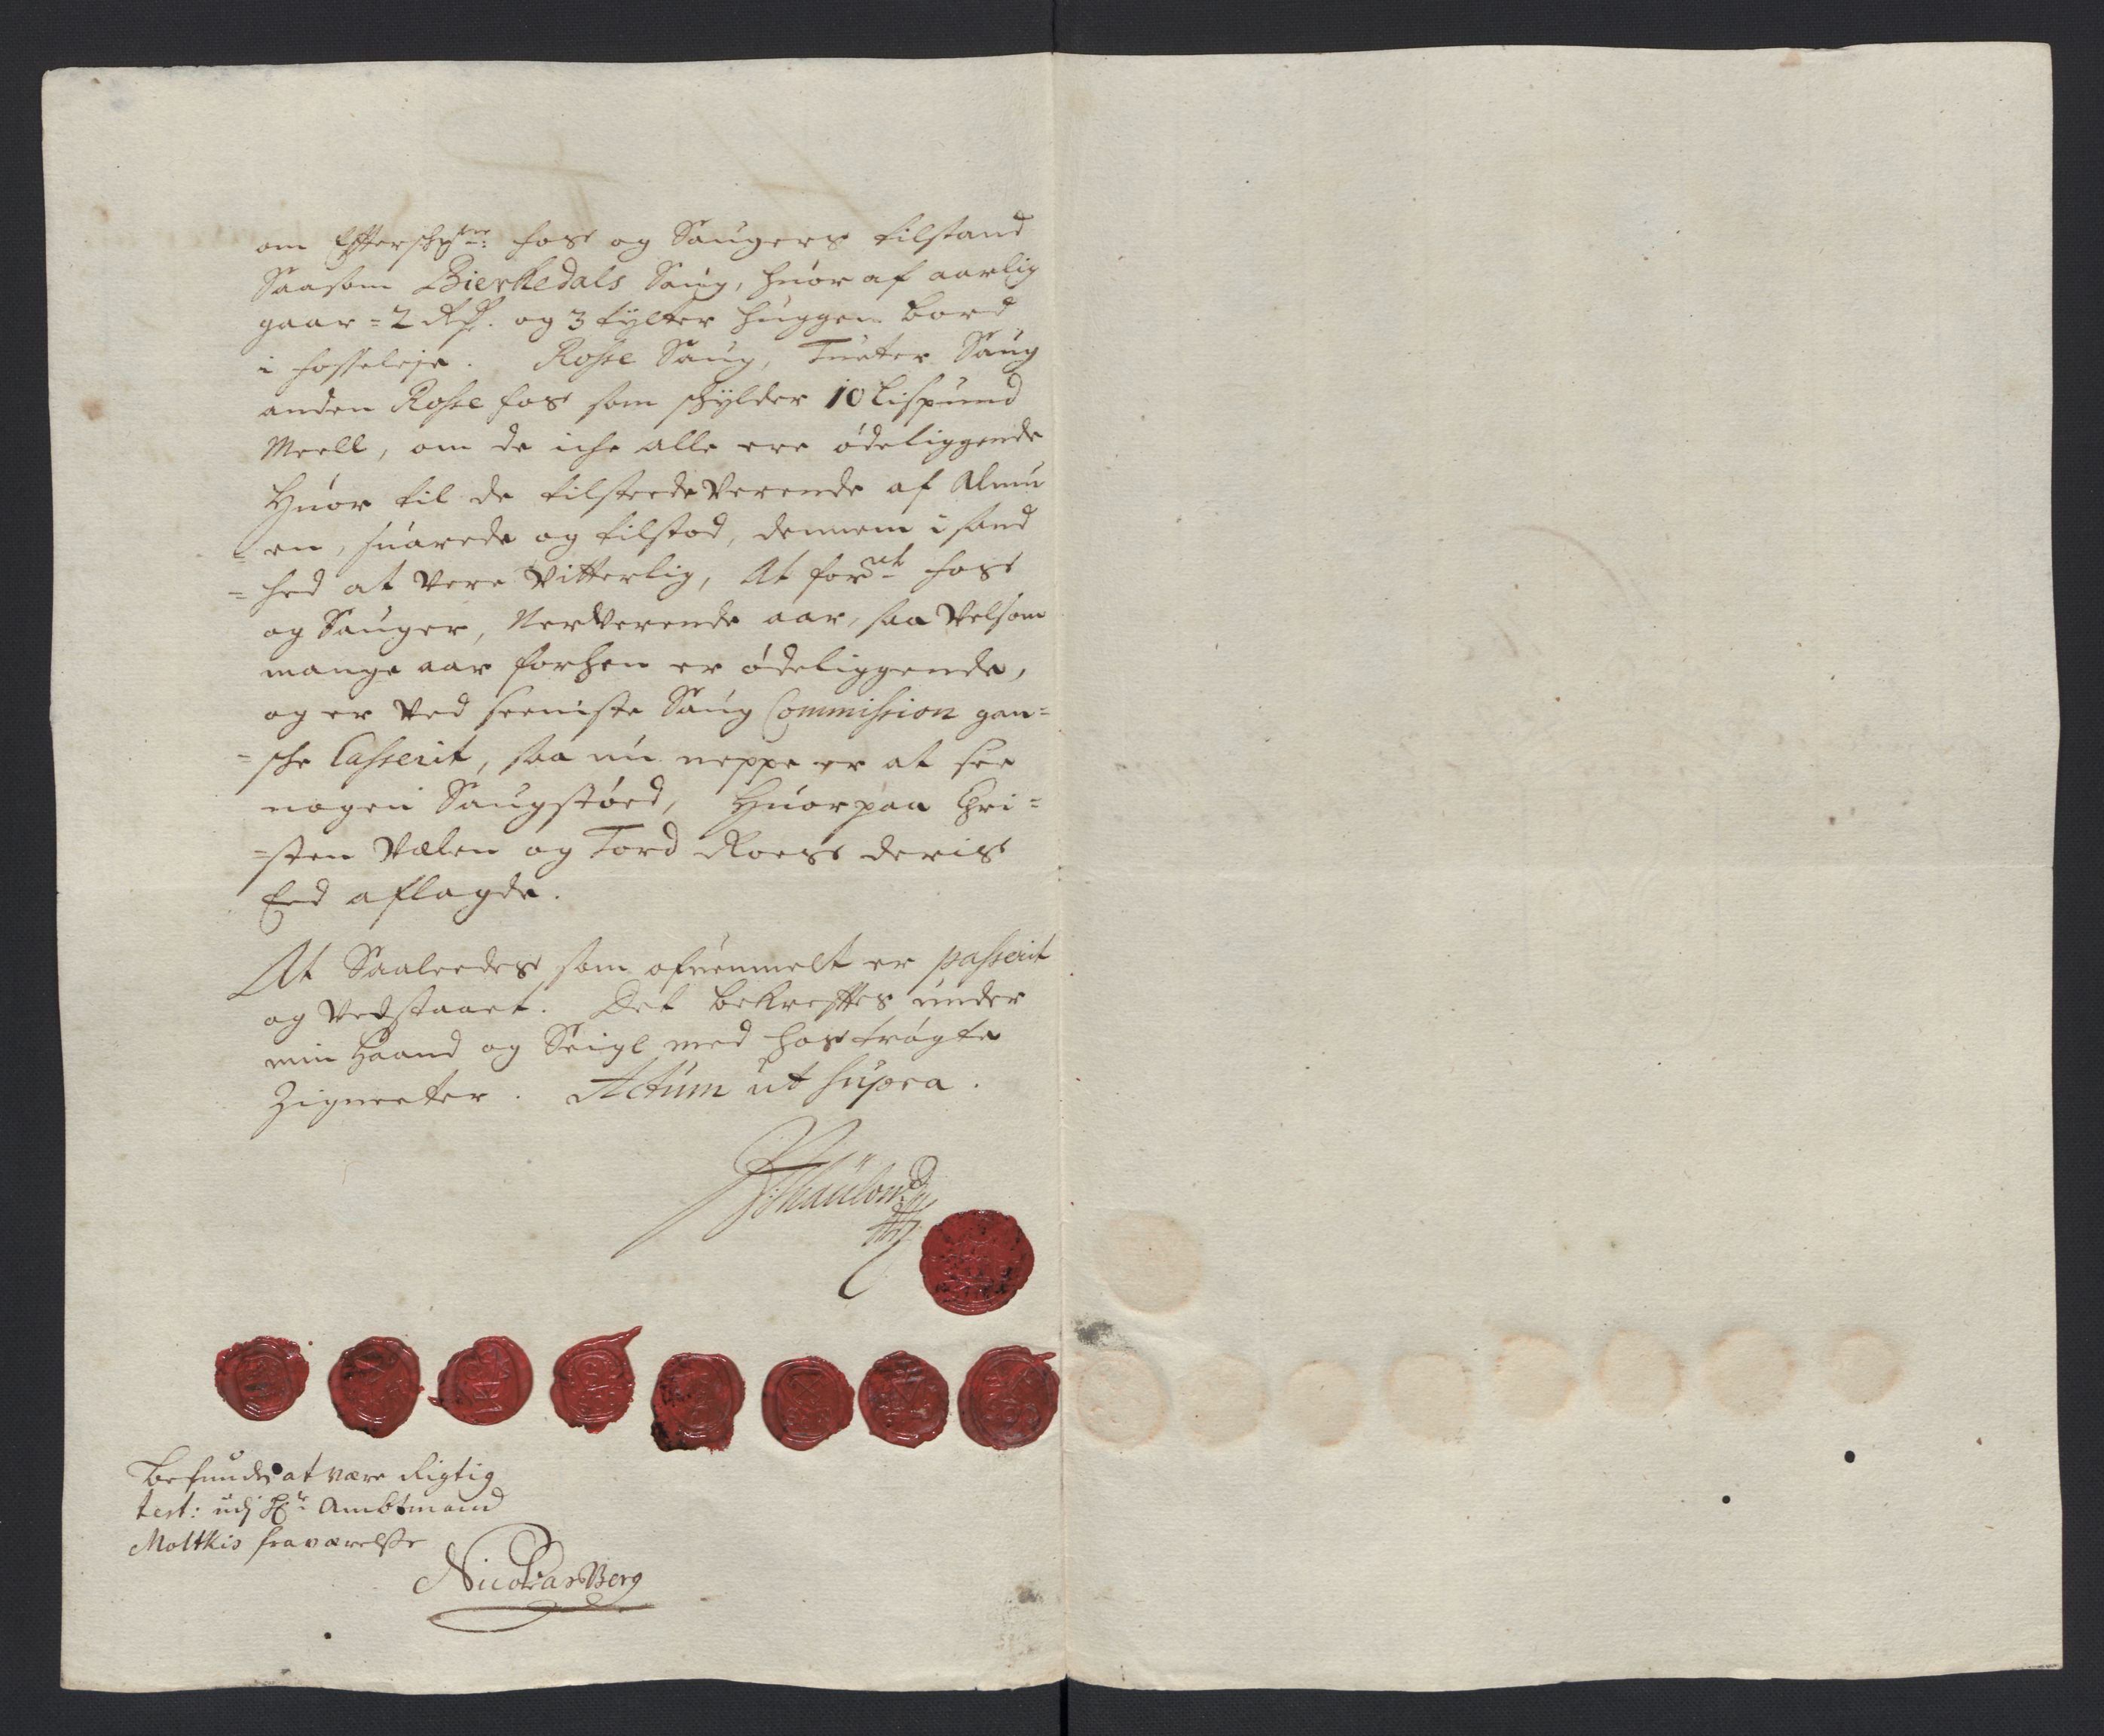 om Effterschrne: foss og Saugers tilstand
Saasom Bierkedals Saug, huor af aarlig
gaar = 2 Rdr. og 3 tylter huggen bord
i fosseleje. Rosse Saug, Tueter Saug
anden Rosse foss som schylder 10 Lispund
Meell, om de iche alle ere ødeliggende
Huor til de tilstedeVerende af Almu
=en, suarede og tilstod, dennem i sand
=hed at Vere Vitterlig, At forne foss
og Sauger, NerVerende aar, saa Velsom
mange aar forhen er ødeliggende,
og er Ved seeniste Saug Commission gan=
=sche Casserit, saa nu neppe er at see
nogen Saugstøed, Huorpaa Chri=
=sten Vælen og Tord Roess deris
Eed aflagde.
At Saaleedes som ofuenmelt er passerit
og Vedstaaet. Det bekreffter under
min Haand og Seigl med hostrøgte
Zigneeter. Actum ut supra.
Befindes at være Rigtig
test: udj Hr: Ambtmand
Moltkis fraværelsse
Nicolas Berg